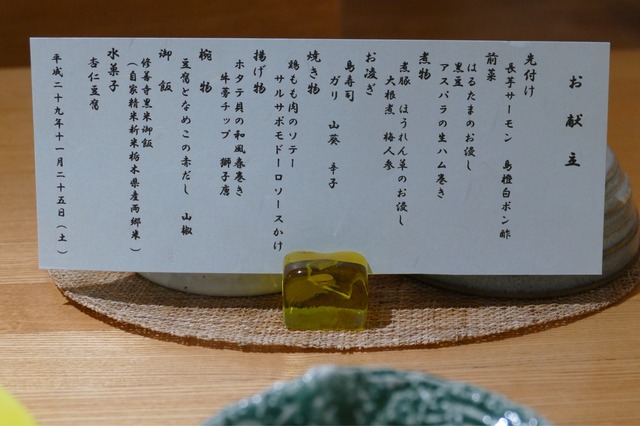 お献立
先付け
長芋サーモン　島橙白ポン酢
前菜
はるたまのお浸し
黒豆
アスパラの生ハム巻き
煮物
煮豚　ほうれん草のお浸し
大根煮　梅人参
お凌ぎ
島寿司
ガリ　山葵　辛子
焼き物
鶏もも肉のソテー
サルサポモドーロソースかけ
揚げ物
ホタテ貝の和風春巻き
牛蒡チップ　獅子唐
椀物
豆腐となめこの赤だし　山椒
御飯
修善寺黒米御飯
（自家精米新米栃木県産両郷米）
水菓子
杏仁豆腐
平成二十九年十一月二十五日（土）